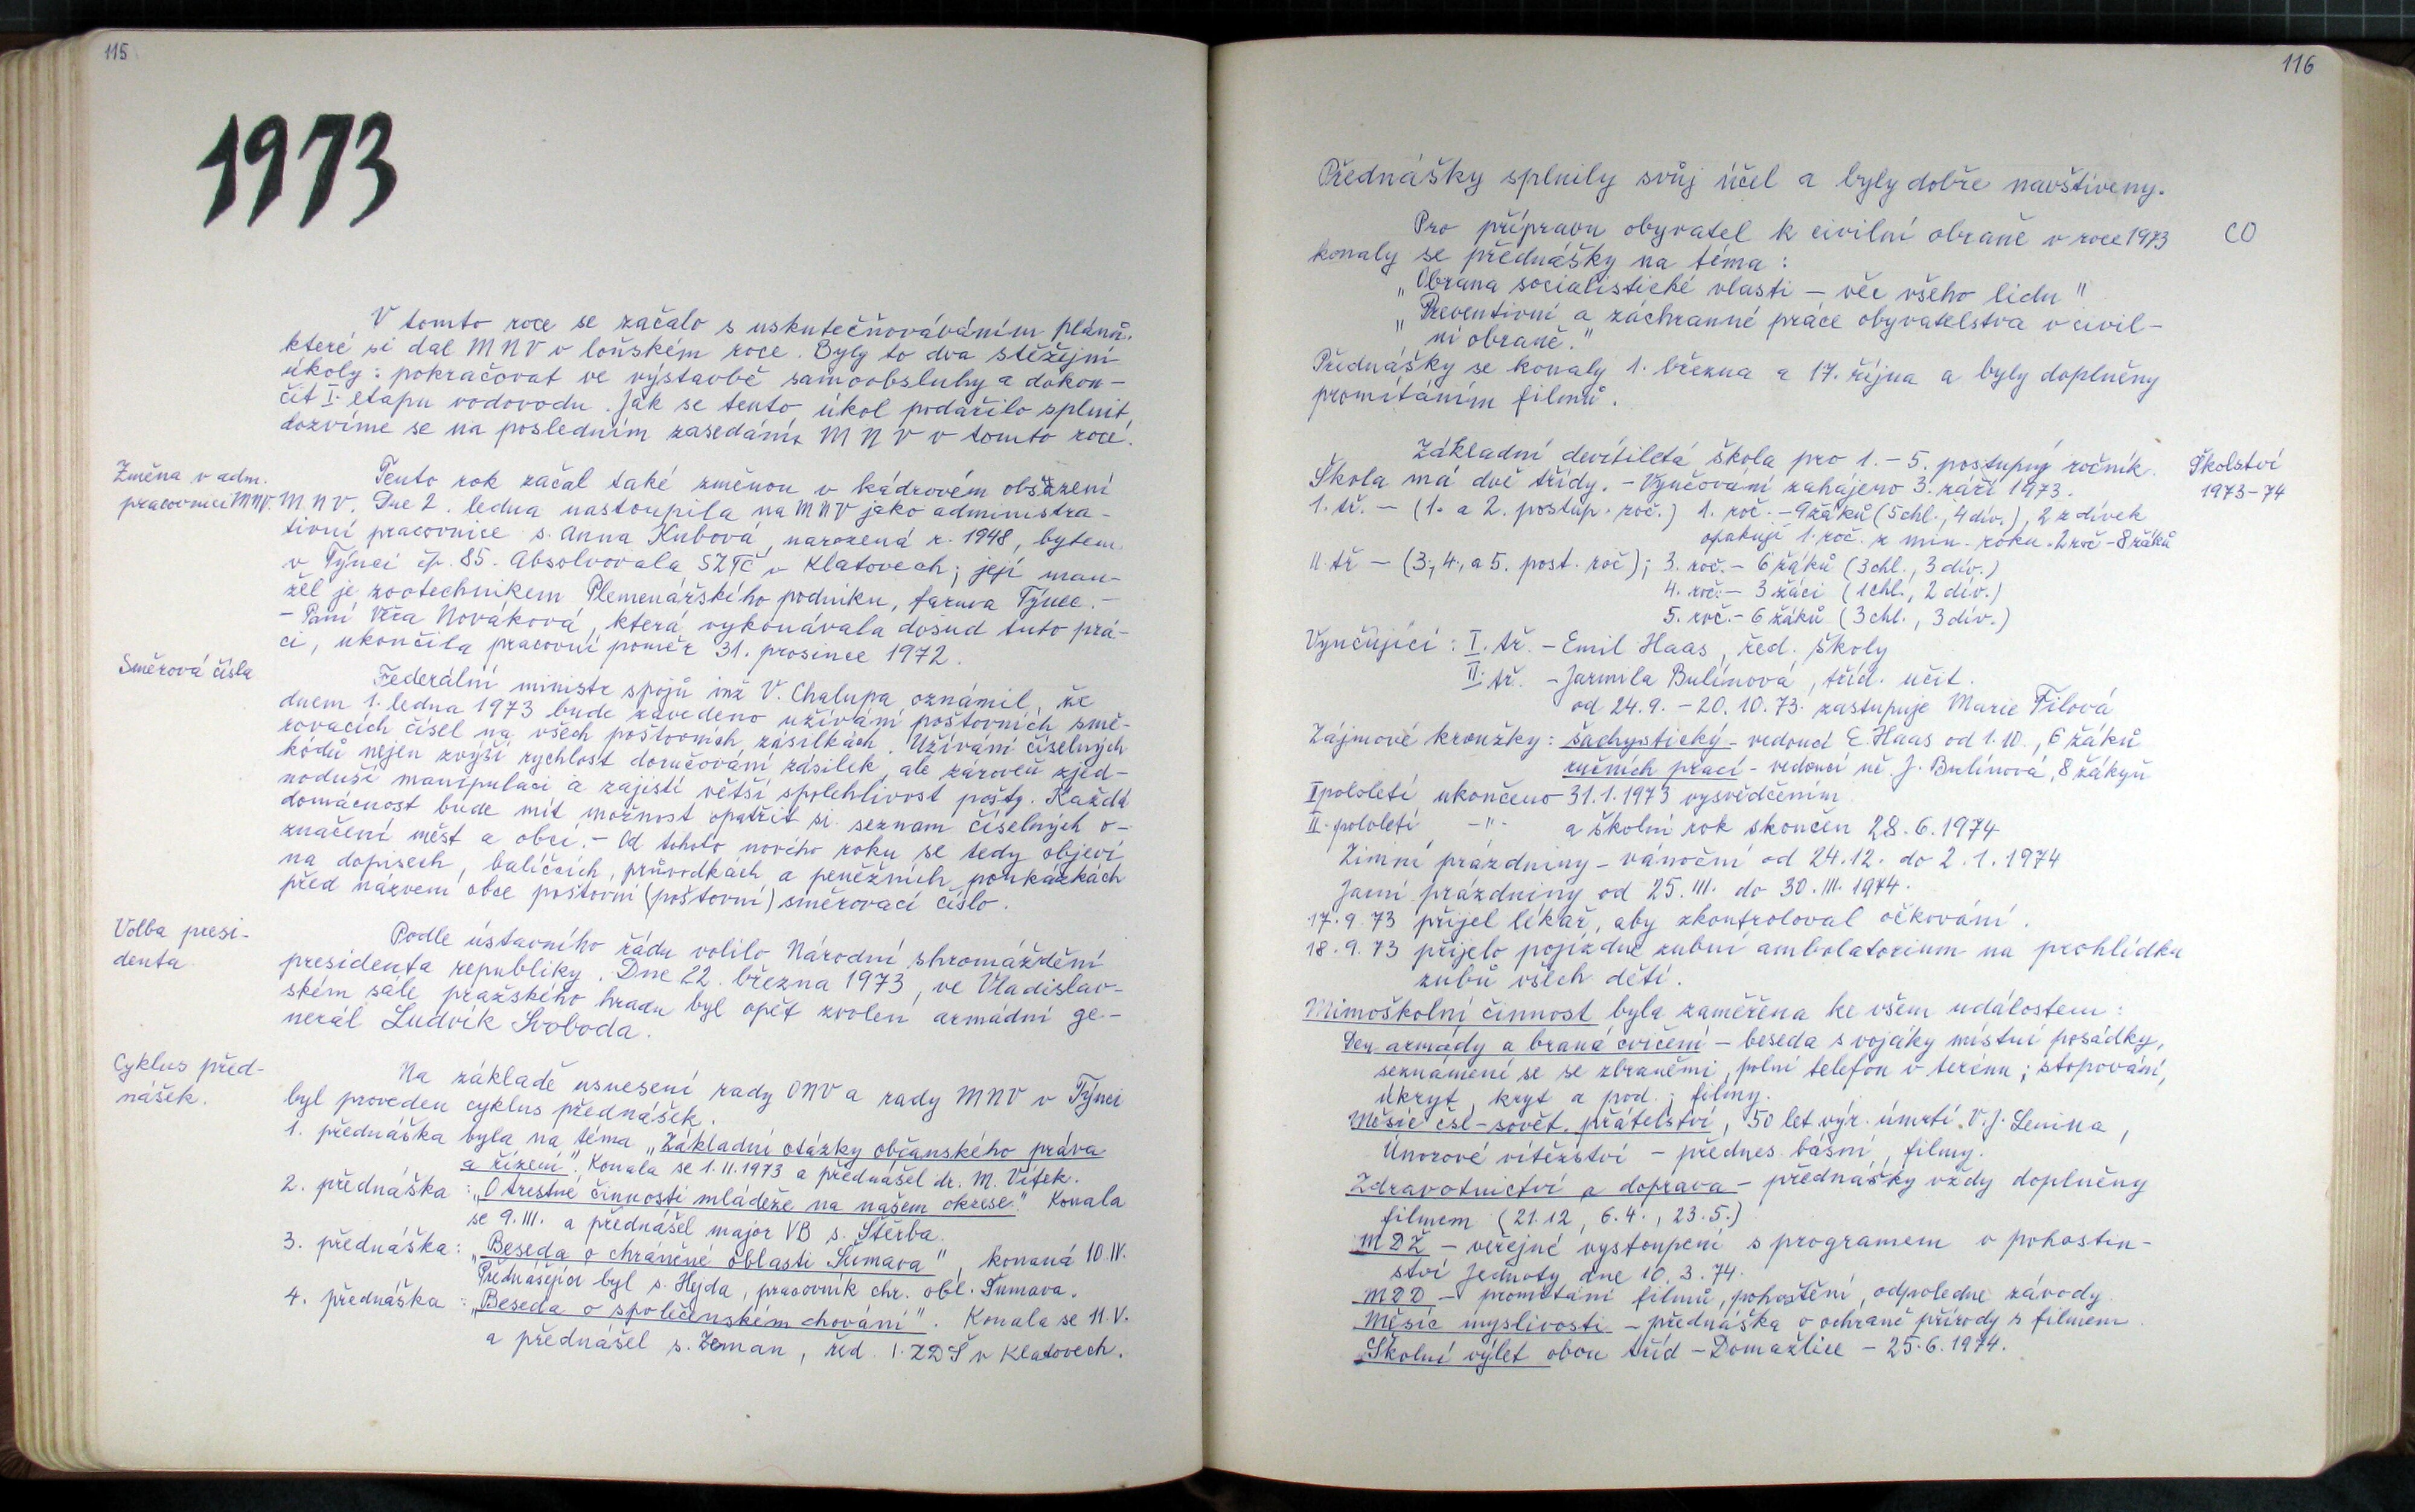 115
1973
V tomto roce se začalo s uskutečňovávánim plánů,
které si dal MNV v loňském roce. Byly to dva stěžejní
úkoly: pokračovat ve výstavbě samoobsluhy a dokon-
čit I. etapu vodovodu. Jak se tento úkol podařilo splnit,
dozvíme se na posledním zasedání MNV v tomto roce.
Změna v adm.
pracovnici MNV.
Tento rok začal také změnou v kádrovém obsazení
MNV. Dne 2. ledna nastoupila na MNV jako administra-
tivní pracovnice s. Anna Kubová, narozená r. 1948, bytem
v Týnci čp. 85. Absolvovala SZTŠ v Klatovech; její man-
žel je zootechnikem Plemenářského podniku, farma Týnec. -
- Paní Věra Nováková, která vykonávala dosud tuto prá-
ci, ukončila pracovní poměr 31. prosince 1972.
Směrová čísla
Federální ministr spojů inž V. Chalupa oznámil, že
dnem 1. ledna 1973 bude zavedeno užívání poštovních smě-
rovacích čísel na všech poštovních zásilkách. Užívání číselných
kódů nejen zvýší rychlost doručování zásilek, ale zároveň zjed-
noduší manipulaci a zajistí větší spolehlivost pošty. Každá
domácnost bude mít možnost opatřit si seznam číselných o-
značení měst a obcí. - Od tohoto nového roku se tedy objeví
na dopisech, balíčcích, průvodkách a peněžních poukázkách
před názvem obce poštovní (poštovní) směrovací číslo.
Volba presi-
denta
Podle ústavního řádu volilo Národní shromáždění
presidenta republiky. Dne 22. března 1973, ve Vladislav-
ském sále pražského hradu byl opět zvolen armádní ge-
nerál Ludvík Svoboda.
Cyklus před-
nášek.
Na základě usnesení rady ONV a rady MNV v Týnci
byl proveden cyklus přednášek.
1. přednáška byla na téma „Základní otázky občanského práva
a řízení". Konala se 1.II.1973 a přednášel dr. M. Vítek.
2. přednáška: „O trestné činnosti mládeže na našem okrese." Konala
se 9.III. a přednášel major VB s. Štěrba.
3. přednáška: „Beseda o chráněné oblasti Šumava", konaná 10.IV.
Přednášející byl s. Hejda, pracovník chr. obl. Šumava.
4. přednáška: „Beseda o společenském chování". Konala se 11.V.
a přednášel s. Zeman, řed. I. ZDŠ v Klatovech.
116
Přednášky splnily svůj účel a byly dobře navštíveny.
CO
Pro přípravu obyvatel k civilní obraně v roce 1973
konaly se přednášky na téma:
„Obrana socialistické vlasti - věc všeho lidu"
„Preventivní a záchranné práce obyvatelstva v civil-
ní obraně."
Přednášky se konaly 1. března a 17. října a byly doplněny
promítáním filmů.
Školství
1973-74
Základní devítiletá škola pro 1.-5. postupný ročník.
Škola má dvě třídy. - Vyučování zahájeno 3. září 1973.
1. tř. - (1. a 2. postup. roč.) 1. roč. - 9 žáků (5 chl., 4 dív.), 2 z dívek
opakují 1. roč. z min. roku. 2 roč - 8 žáků
II. tř - (3., 4., a 5. post. roč); 3. roč. - 6 žáků (3 chl., 3 dív.)
4. roč. - 3 žáci (1 chl., 2 dív.)
5. roč. - 6 žáků (3 chl., 3 dív.)
Vyučující: I. tř. - Emil Haas, řed. školy
II. tř. - Jarmila Bulínová, tříd. učit.
od 24.9. - 20.10.73. zastupuje Marie Filová
Zájmové kroužky: šachystický - vedoucí E. Haas od 1.10., 6 žáků
ručních prací - vedoucí uč. J. Bulínová, 8 žákyň
I pololetí ukončeno 31.1.1973 vysvědčením
II. pololetí -"- a školní rok skončen 28.6.1974
Zimní prázdniny - vánoční od 24.12. do 2.1.1974
Jarní prázdniny od 25.III. do 30.III.1974.
17.9.73 přijel lékař, aby zkontroloval očkování.
18.9.73 přijelo pojízdné zubní ambolatorium na prohlídku
zubů všech dětí.
Mimoškolní činnost byla zaměřena ke všem událostem:
Den armády a braná cvičení - beseda s vojáky místní posádky,
seznámení se se zbraněmi, polní telefon v terénu; stopování,
úkryt, kryt a pod.; filmy.
Měsíc čsl-sovět. přátelství, 50 let výr. úmrtí V. J. Lenina,
Únorové vítězství - přednes básní, filmy.
Zdravotnictví a doprava - přednášky vždy doplněny
filmem (21.12, 6.4., 23.5.)
MDŽ - veřejné vystoupení s programem v pohostin-
ství Jednoty dne 10.3.74.
MDD - promítání filmů, pohoštění, odpoledne závody.
Měsíc myslivosti - přednáška o ochraně přírody s filmem.
Školní výlet obou tříd - Domažlice - 25.6.1974.